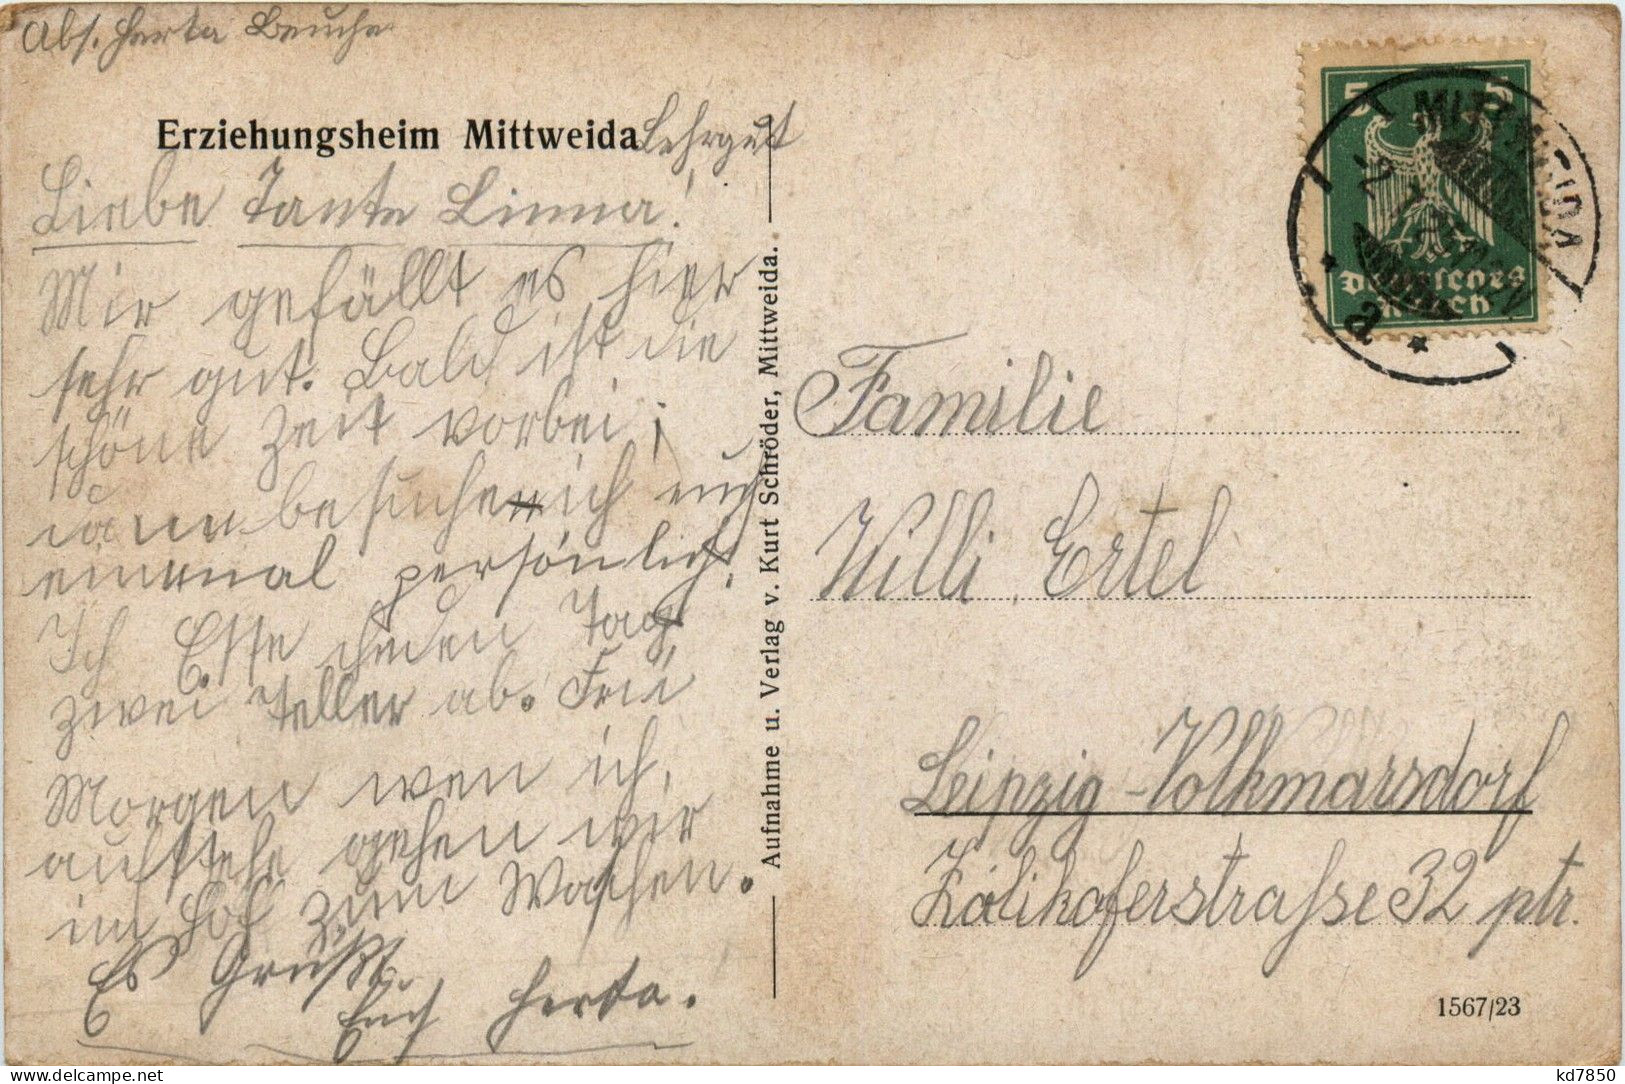 Abs. Herta Beuche
Erziehungsheim Mittweida Lehrgut
Liebe Tante Linna!
Mir gefällt es hier
sehr gut. Bald ist die
schöne Zeit vorbei,
dann besuche ich euch
einmal persönlich.
Ich Esse jeden Tag
zwei Teller ab. Frü
Morgen wen ich,
aufstehe gehen wir
im Hof zum Waschen.
Es Grüßt
Euch Herta.
Aufnahme u. Verlag v. Kurt Schröder, Mittweida.
5 5
Deutsches
Reich
MITTWEIDA
a
Familie
Willi Ertel
Leipzig-Volkmarsdorf
Zollikoferstraße 32 ptr.
1567/23
www.delcampe.net
kd7850